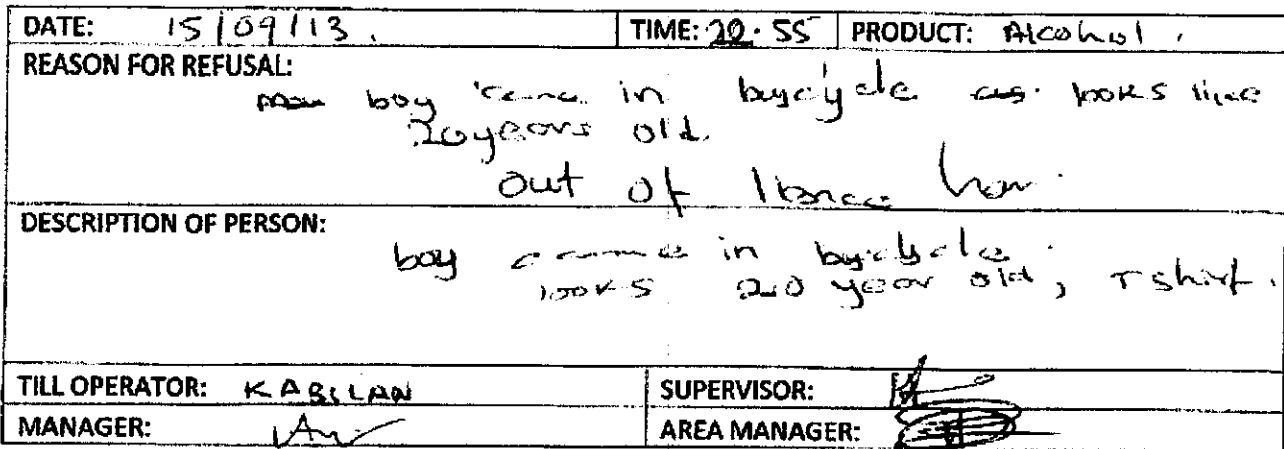 DATE: 15/09/13. TIME: 22.55 PRODUCT: Alcohol.
REASON FOR REFUSAL:
boy came in bycycle looks like
20 years old.
out of
DESCRIPTION OF PERSON:
boy came in bycycle.
looks 20 year old, T shirt.
TILL OPERATOR: KABILAN SUPERVISOR:
MANAGER: AREA MANAGER: